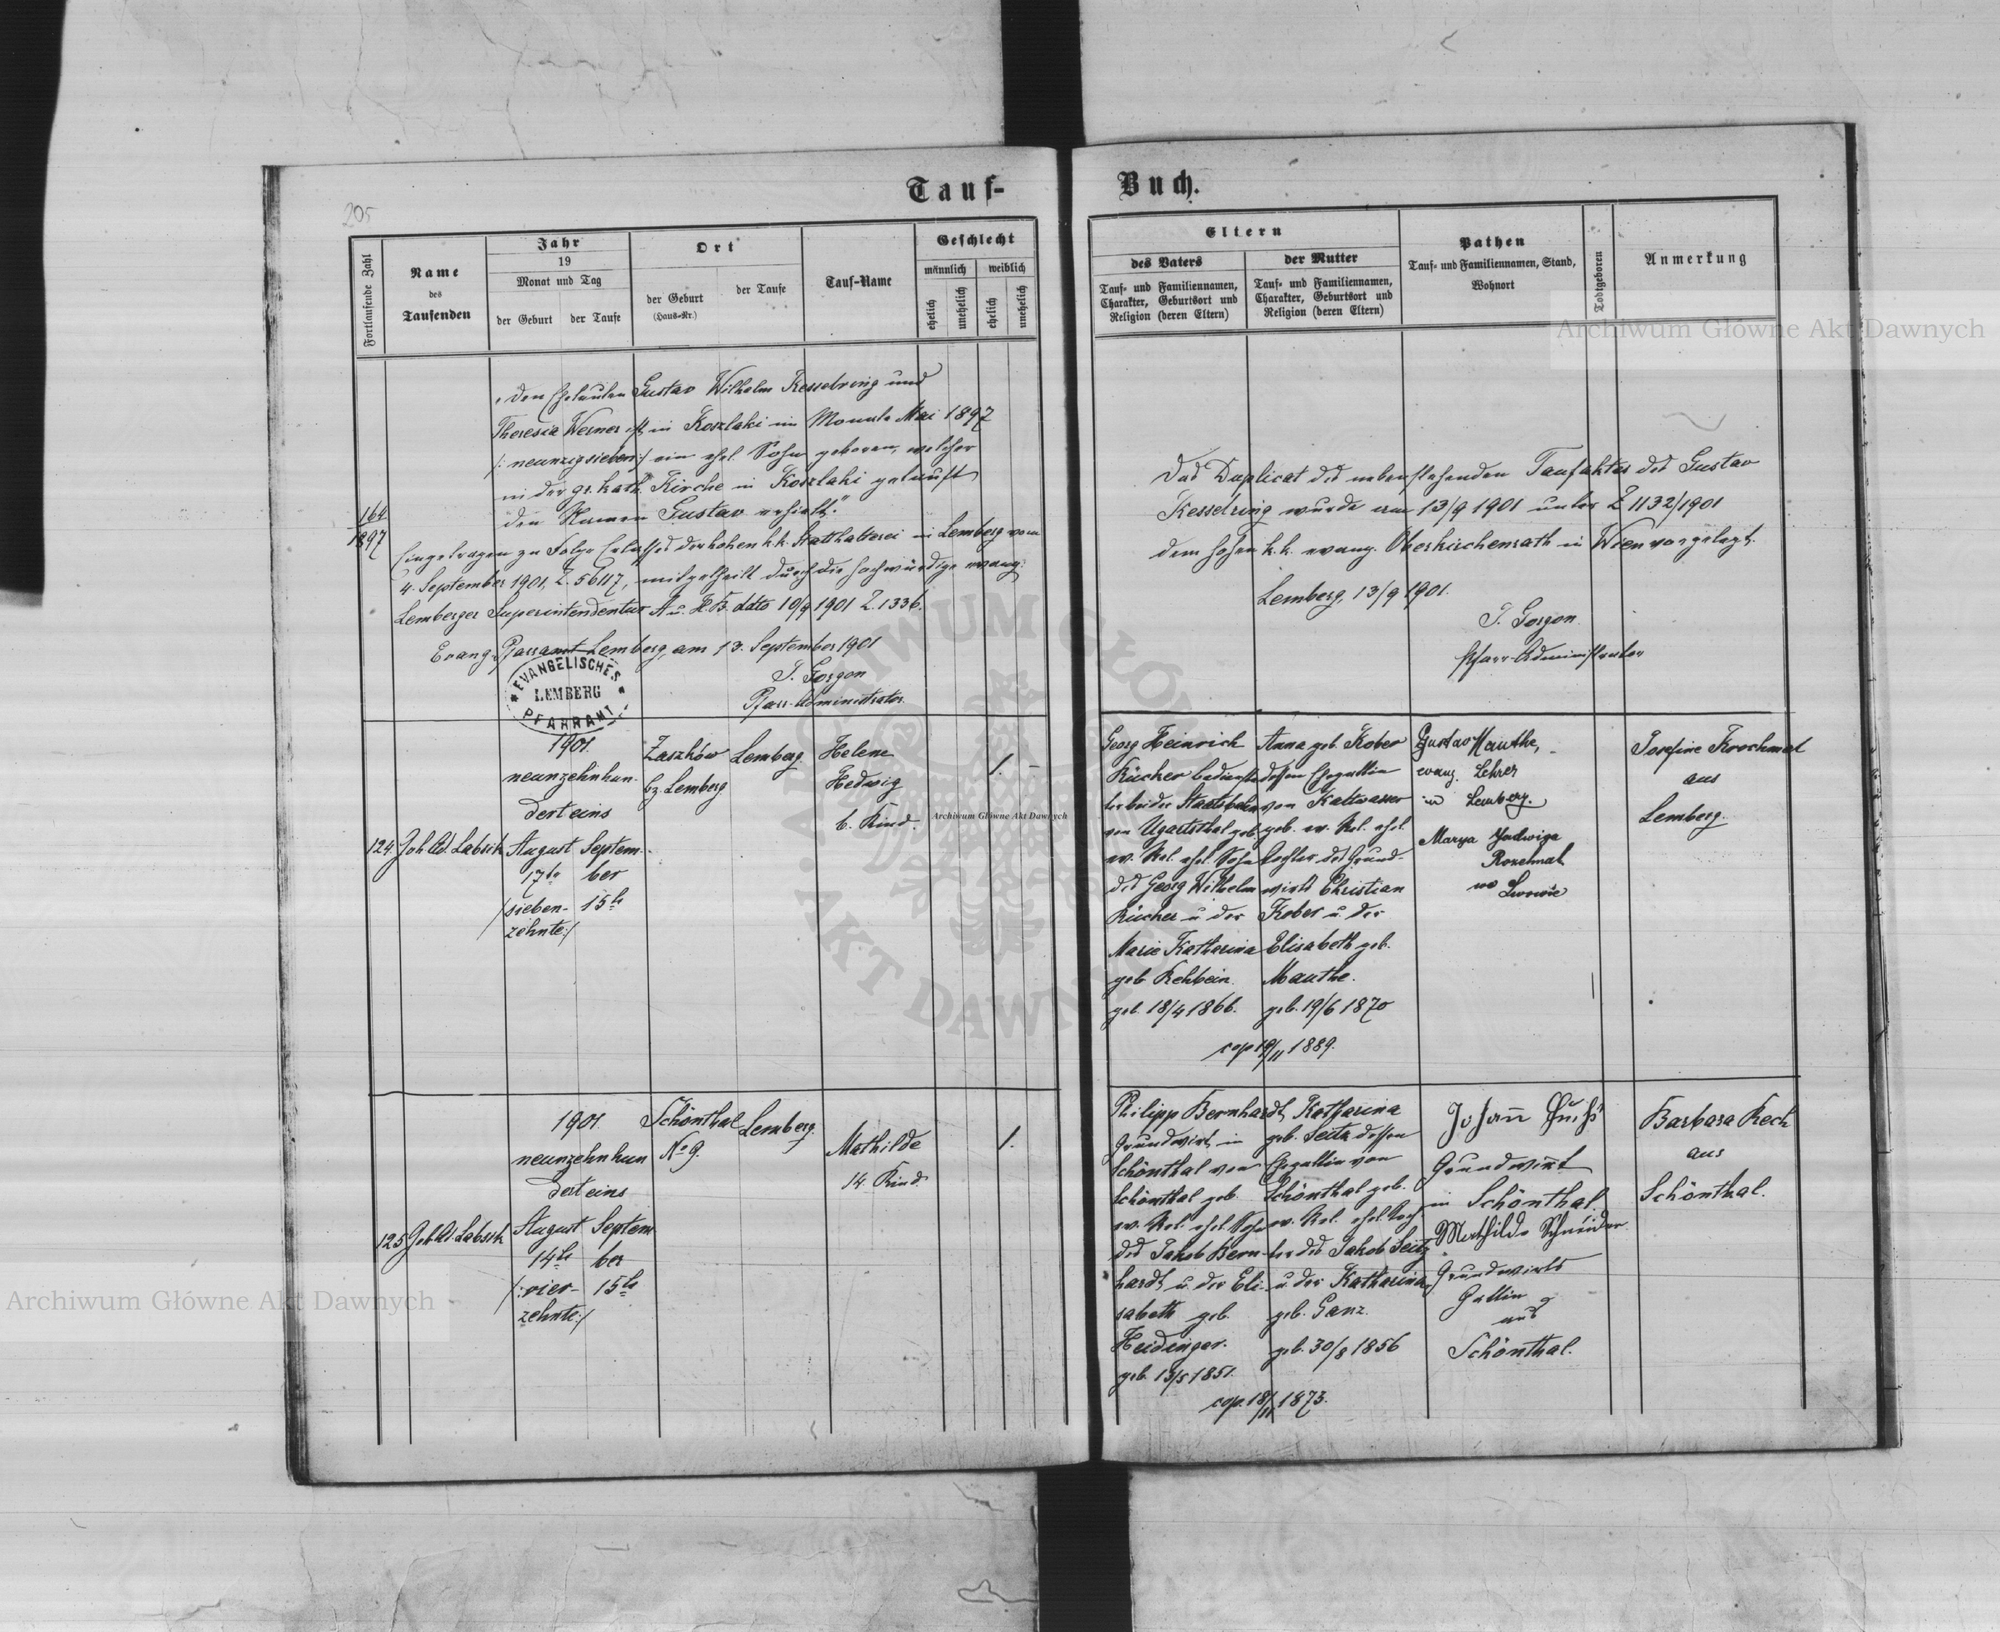 Tauf-
Buch.
205
Fortlaufende Zahl
Name
des
Taufenden
Jahr
19
Monat und Tag
der Geburt
der Taufe
Ort
der Geburt
(Haus-Nr.)
der Taufe
Tauf-Name
Geschlecht
männlich
weiblich
ehelich
unehelich
ehelich
unehelich
Eltern
des Vaters
Tauf- und Familiennamen,
Charakter, Geburtsort und
Religion (deren Eltern)
der Mutter
Tauf- und Familiennamen,
Charakter, Geburtsort und
Religion (deren Eltern)
Pathen
Tauf- und Familiennamen, Stand,
Wohnort
Todtgeboren
Anmerkung
164
1897
„Den Eheleuten Gustav Wilhelm Kesselring und
Theresia Werner ist in Koszlaki im Monate Mai 1897
/:neunzigsieben:/ ein ehel. Sohn geboren, welcher
in der gr. kath. Kirche in Koszlaki getauft
den Namen Gustav erhielt."
Eingetragen zu Folge Erlasses der hohen k.k. Statthalterei in Lemberg vom
4. September 1901, Z. 56117, mitgetheilt durch die hochwürdige evang.
Lemberger Superintendentur A. u. H.B. ddto 10/9 1901 Z. 1336.
Evang. Pfarramt Lemberg, am 13. September 1901
EVANGELISCHES
LEMBERG
PFARRAMT
Pfarr-Administrator
Das Duplicat des nebenstehenden Taufaktes des Gustav
Kesselring wurde am 13/9 1901 unter Z 1132/1901
dem hohen k.k. evang. Oberkirchenrath in Wien vorgelegt.
Lemberg, 13/9 1901.
Pfarr-Administrator
124
1901.
neunzehnhun-
dert eins
August
17te
/sieben-
zehnte:/
Septem-
ber
15te
Zaszków
bz. Lemberg
Lemberg.
Helene
Hedwig
6. Kind.
1.
Georg Heinrich
Rücher bedienste-
ter bei der Staatsbahn
von Ugartsthal geb.
ev. Rel. ehel. Sohn
des Georg Wilhelm
Rücher u. der
Marie Katharina
geb. Rehbein.
geb. 18/4 1866.
Anna geb. Kober
dessen Ehegattin
von Kaltwasser
geb. ev. Rel. ehel.
Tochter des Grund-
wirts Christian
Kober u. der
Elisabeth geb.
Mauthe.
geb. 19/6 1870
cop 19/11 1889.
Gustav Mauthe,
evang. Lehrer
in Lemberg.
Marya Jadwiga
we Lwowie
Josefine Krochmal
aus
Lemberg.
125
1901.
neunzehnhun
dert eins
August
14te
/:vier-
zehnte:/
Septem
ber
15te
Schönthal
No 9.
Lemberg.
Mathilde
14. Kind.
1.
Philipp Bernhardt,
Grundwirt in
Schönthal von
Schönthal geb.
ev. Rel. ehel. Sohn
des Jakob Bern-
hardt u. der Eli-
sabeth geb.
Heidinger.
geb. 13/5 1851.
Katharina
geb. Seitz dessen
Ehegattin von
Schönthal geb.
ev. Rel. ehel. Toch-
ter des Jakob Seitz
u. der Katharina
geb. Ganz.
geb. 30/8 1856
cop. 18/11 1873.
Johann Fuchs
Grundwirt
in Schönthal.
Mathilde Schneider
Grundwirts
Gattin
aus
Schönthal.
Barbara Rech
aus
Schönthal.
Archiwum Główne Akt Dawnych
Archiwum Główne Akt Dawnych
Archiwum Główne Akt Dawnych